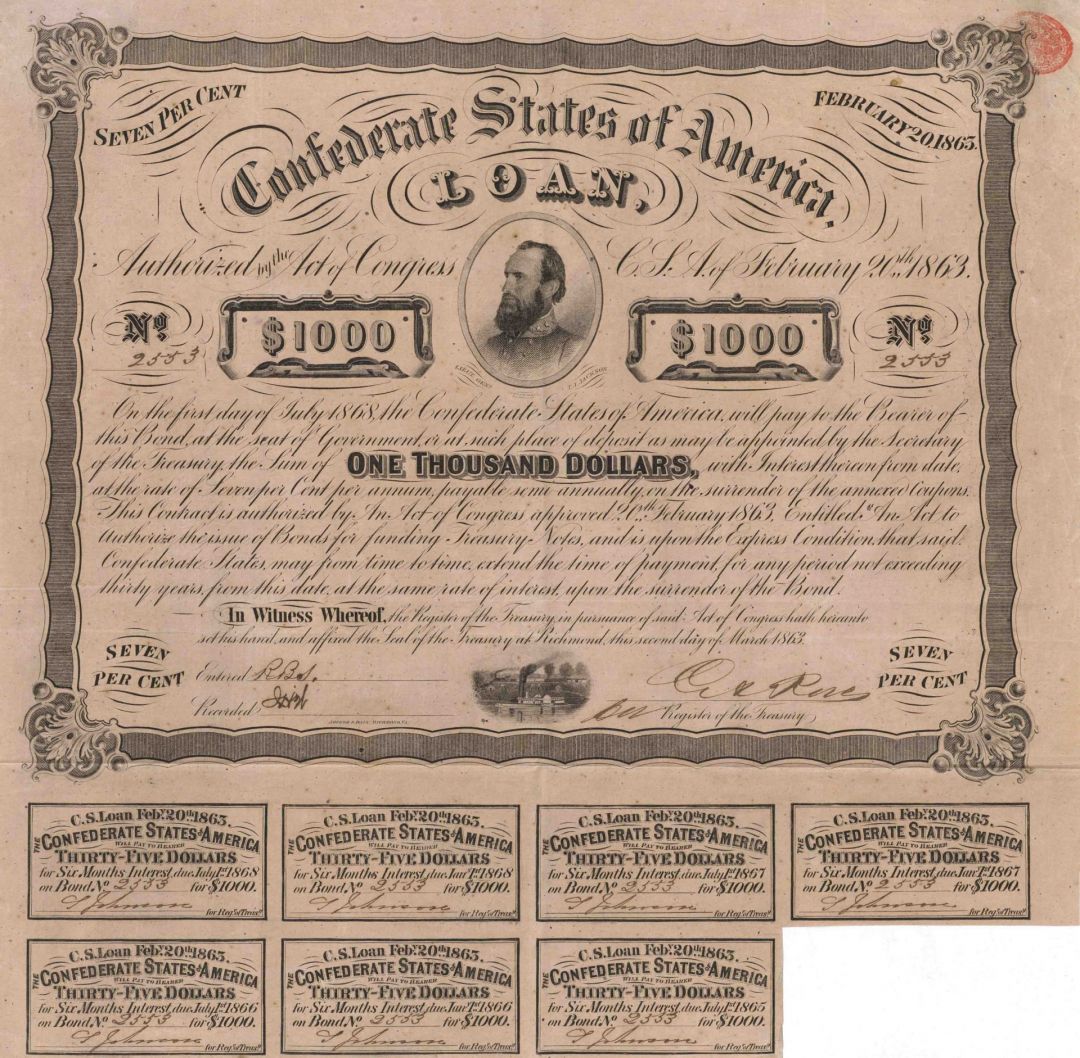 SEVEN PER CENT
FEBRUARY 20, 1863.
Confederate States of America.
LOAN,
Authorized by the Act of Congress C. S. A. of February 20th 1863.
No. 2553
$1000
$1000
No. 2553
LIEUT. GENL. T. J. JACKSON
On the first day of July 1868, the Confederate States of America, will pay to the Bearer of
this Bond, at the seat of Government, or at such place of deposit as may be appointed by the Secretary
of the Treasury, the Sum of ONE THOUSAND DOLLARS, with Interest thereon from date,
at the rate of Seven per Cent per annum, payable semi annually, on the surrender of the annexed Coupons.
This Contract is authorized by An Act of Congress approved 20th February 1863, Entitled "An Act to
authorize the issue of Bonds for funding Treasury Notes, and is upon the Express Condition, that said
Confederate States, may from time to time, extend the time of payment, for any period not exceeding
thirty years, from this date, at the same rate of interest, upon the surrender of the Bond.
In Witness Whereof, the Register of the Treasury, in pursuance of said Act of Congress hath hereunto
set his hand, and affixed the Seal of the Treasury at Richmond, this second day of March 1863.
SEVEN PER CENT
SEVEN PER CENT
Entered R.B.S.
Recorded
Register of the Treasury
C.S. Loan Feby. 20th 1863.
THE CONFEDERATE STATES of AMERICA
WILL PAY TO BEARER
THIRTY-FIVE DOLLARS
for Six Months Interest, due July 1st 1868
on Bond No. 2553 for $1000.
S Johnson
for Reg. of Treasy.
C.S. Loan Feby. 20th 1863.
THE CONFEDERATE STATES of AMERICA
WILL PAY TO BEARER
THIRTY-FIVE DOLLARS
for Six Months Interest, due Jany. 1st 1868
on Bond No. 2553 for $1000.
S Johnson
for Reg. of Treasy.
C.S. Loan Feby. 20th 1863.
THE CONFEDERATE STATES of AMERICA
WILL PAY TO BEARER
THIRTY-FIVE DOLLARS
for Six Months Interest, due July 1st 1867
on Bond No. 2553 for $1000.
S Johnson
for Reg. of Treasy.
C.S. Loan Feby. 20th 1863.
THE CONFEDERATE STATES of AMERICA
WILL PAY TO BEARER
THIRTY-FIVE DOLLARS
for Six Months Interest, due Jany. 1st 1867
on Bond No. 2553 for $1000.
S Johnson
for Reg. of Treasy.
C.S. Loan Feby. 20th 1863.
THE CONFEDERATE STATES of AMERICA
WILL PAY TO BEARER
THIRTY-FIVE DOLLARS
for Six Months Interest, due July 1st 1866
on Bond No. 2553 for $1000.
S Johnson
for Reg. of Treasy.
C.S. Loan Feby. 20th 1863.
THE CONFEDERATE STATES of AMERICA
WILL PAY TO BEARER
THIRTY-FIVE DOLLARS
for Six Months Interest, due Jany. 1st 1866
on Bond No. 2553 for $1000.
S Johnson
for Reg. of Treasy.
C.S. Loan Feby. 20th 1863.
THE CONFEDERATE STATES of AMERICA
WILL PAY TO BEARER
THIRTY-FIVE DOLLARS
for Six Months Interest, due July 1st 1865
on Bond No. 2553 for $1000.
S Johnson
for Reg. of Treasy.